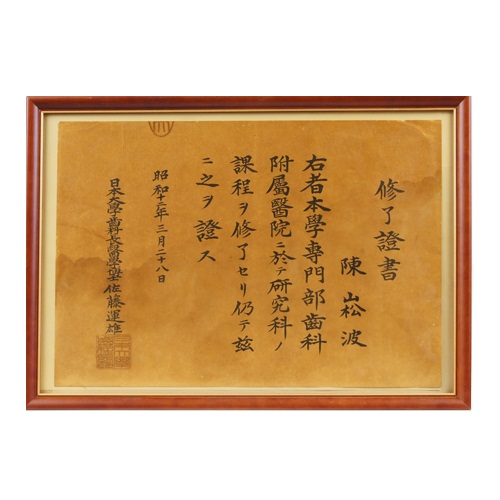 修了證書
陳 山松波
右者本學專門部齒科
附屬醫院ニ於テ研究科ノ
課程ヲ修了セリ仍テ玆
ニ之ヲ證ス
昭和十二年三月二十八日
日本大學齒科長醫學博士佐藤運雄